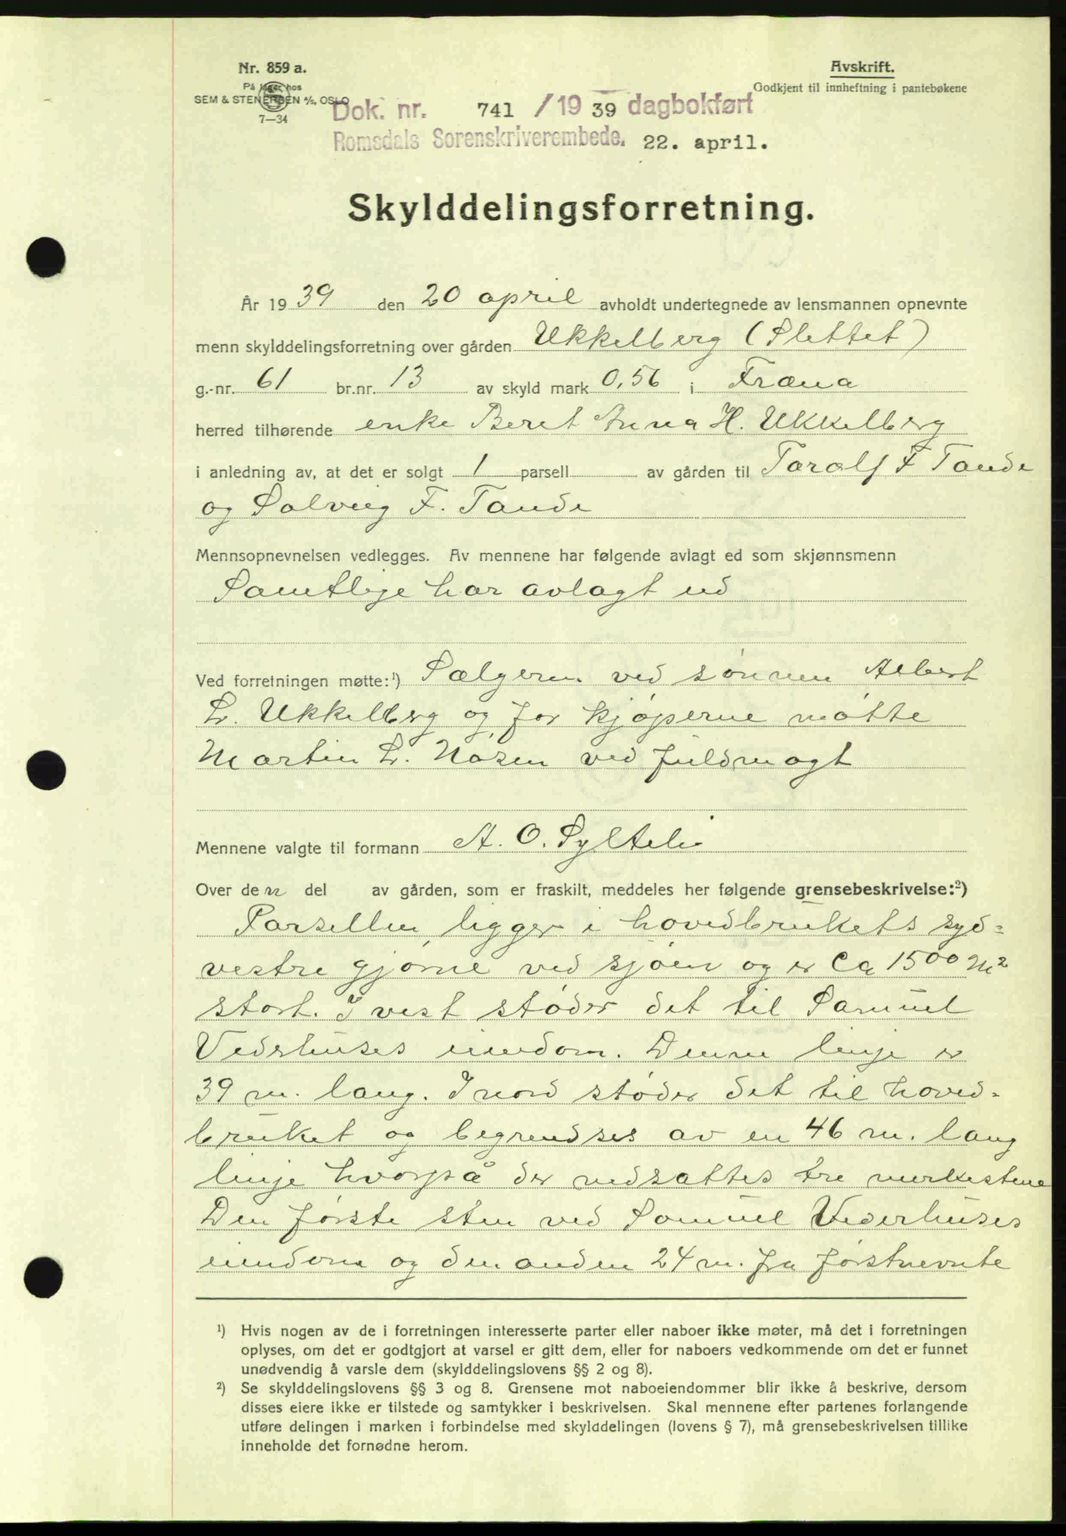 Nr. 859 a.
På lager hos
SEM & STENERSEN A/S, OSLO
7—34
Avskrift.
Godkjent til innheftning i pantebøkene
Dok. nr. 741 / 19 39 dagbokført
Romsdals Sorenskriverembede. 22. april.
Skylddelingsforretning.
År 19 39 den 20 april avholdt undertegnede av lensmannen opnevnte
menn skylddelingsforretning over gården Ukkelberg (Slettet)
g.-nr. 61 br.nr. 13 av skyld mark 0,56 i Fræna
herred tilhørende enke Beret Anna H. Ukkelberg
i anledning av, at det er solgt 1 parsell av gården til Taralf F Tande
og Solveig F. Tande
Mennsopnevnelsen vedlegges. Av mennene har følgende avlagt ed som skjønnsmenn
Samtlige har avlagt ed
Ved forretningen møtte:¹) Sælgeren ved sønnen Albert
L. Ukkelberg og for kjøperne møtte
Martin L. Nåsen ved fuldmagt
Mennene valgte til formann A. O. Sylteli
Over den del av gården, som er fraskilt, meddeles her følgende grensebeskrivelse:²)
Parsellen ligger i hovedbrukets syd=
vestre hjørne ved sjøen og er Ca 1500 m²
stort. I vest støder det til Samuel
Vederhuses eiendom. Denne linje er
39 m. lang. I nord støder det til hoved-
bruket og begrendses av en 46 m. lang
linje hvorpå der nedsattes tre merkestene
Den første sten ved Samuel Vederhuses
eiendom og den anden 24 m. fra førstnevnte
¹) Hvis nogen av de i forretningen interesserte parter eller naboer ikke møter, må det i forretningen
oplyses, om det er godtgjort at varsel er gitt dem, eller for naboers vedkommende om det er funnet
unødvendig å varsle dem (skylddelingslovens §§ 2 og 8).
²) Se skylddelingslovens §§ 3 og 8. Grensene mot naboeiendommer blir ikke å beskrive, dersom
disses eiere ikke er tilstede og samtykker i beskrivelsen. Skal mennene efter partenes forlangende
utføre delingen i marken i forbindelse med skylddelingen (lovens § 7), må grensebeskrivelsen tillike
inneholde det fornødne herom.